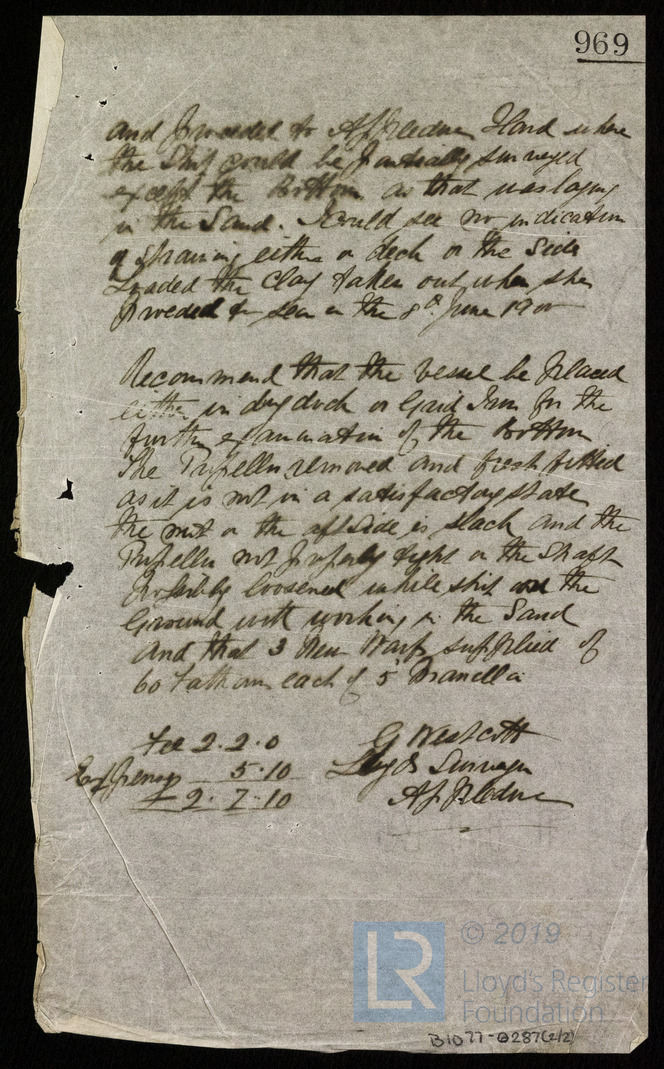 969
and proceeded to Appledore Hard where
the Ship could be partially surveyed
except the Bottom as that was laying
in the Sand. I could see no indication
of straining either on deck or the Side
Loaded the Clay taken out when she
proceded to sea on the 8th June 1900
Recommend that the Vessel be placed
either in dry dock or Grid Iron for the
further examination of the Bottom
The Propeller removed and fresh fitted
as it is not in a satisfactory state
the nut on the aft Side is slack and the
Propeller not properly tight on the Shaft
probably loosened while ship on the
Ground with working in the Sand
And that 3 New Warps supplied of
60 Fathoms each of 5" Manella
Fee 2.2.0 G Westcott
Expenses 5.10 Lloyds Surveyor
£ 2.7.10 Appledore
© 2019
LR
Lloyd's Register
Foundation
B1077-0287(2/2)